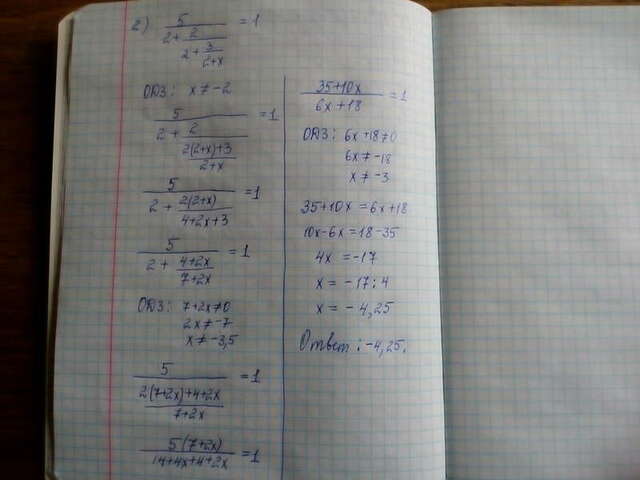 2) 5/(2+2/(2+3/(2+x))) = 1
ОДЗ: x ≠ -2
5/(2+2/((2(2+x)+3)/(2+x))) = 1
5/(2+(2(2+x))/(4+2x+3)) = 1
5/(2+(4+2x)/(7+2x)) = 1
ОДЗ: 7+2x≠0
2x ≠ -7
x ≠ -3,5
5/((2(7+2x)+4+2x)/(7+2x)) = 1
5(7+2x)/(14+4x+4+2x) = 1
(35+10x)/(6x+18) = 1
ОДЗ: 6x+18≠0
6x ≠ -18
x ≠ -3
35+10x = 6x+18
10x-6x = 18-35
4x = -17
x = -17:4
x = -4,25
Ответ: -4,25.